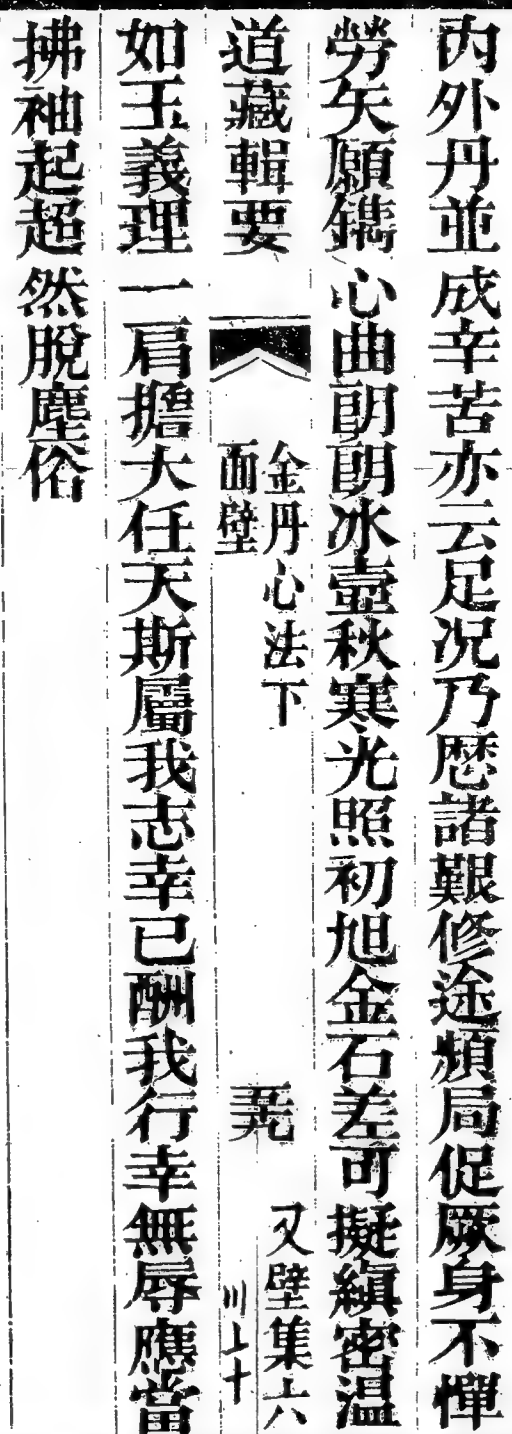 內外丹並成辛苦亦云足況乃歷諸艱修途頻局促厥身不憚
勞矢願鐫心曲朗朗冰壺秋寒光照初旭金石差可擬縝密溫
道藏輯要
金丹心法下
面壁
五九
又壁集六
川上十
如玉義理一肩擔大任天斯屬我志幸已酬我行幸無辱應當
拂袖起超然脫塵俗